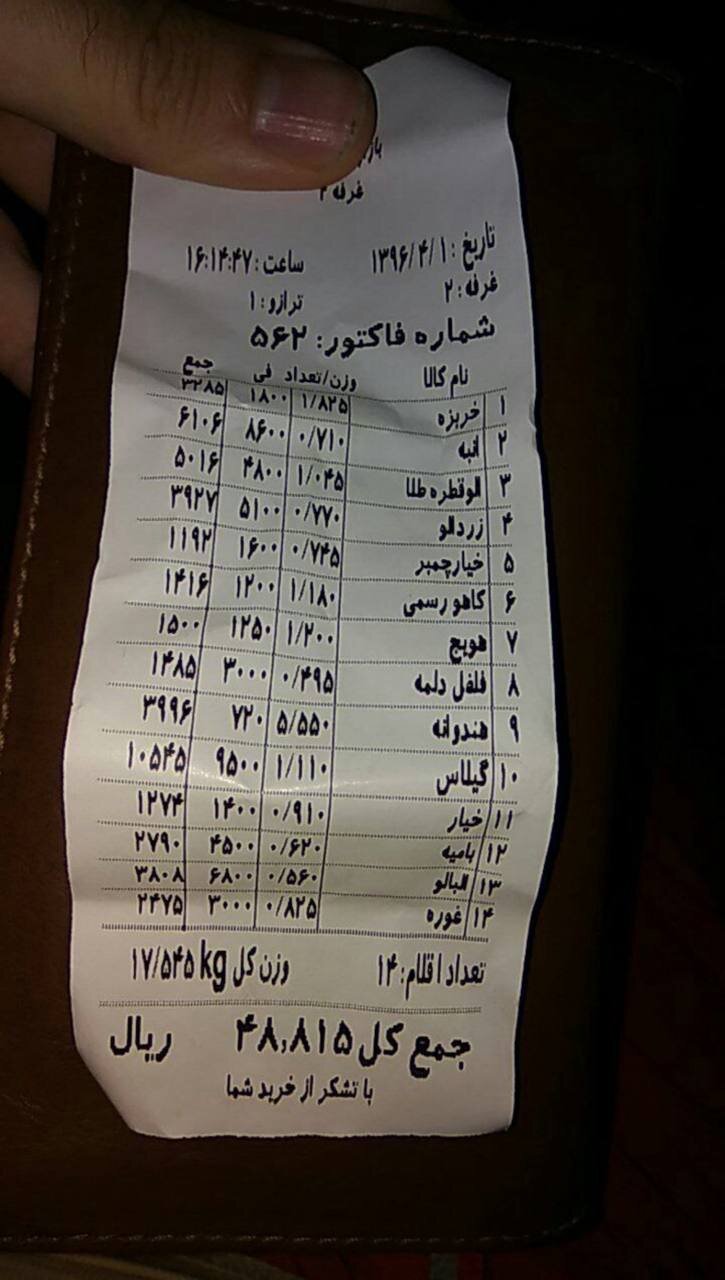 غرفه ۲
تاریخ : ۱۳۹۶/۴/۱ ساعت : ۱۶:۱۴:۴۷
غرفه : ۲ ترازو : ۱
شماره فاکتور: ۵۶۲
نام کالا وزن/تعداد فی جمع
۱ خربزه ۱/۸۲۵ ۱۸۰۰ ۳۲۸۵
۲ انبه ۰/۷۱۰ ۸۶۰۰ ۶۱۰۶
۳ الوقطره طلا ۱/۰۴۵ ۴۸۰۰ ۵۰۱۶
۴ زردالو ۰/۷۷۰ ۵۱۰۰ ۳۹۲۷
۵ خیارچمبر ۰/۷۴۵ ۱۶۰۰ ۱۱۹۲
۶ کاهو رسمی ۱/۱۸۰ ۱۲۰۰ ۱۴۱۶
۷ هویج ۱/۲۰۰ ۱۲۵۰ ۱۵۰۰
۸ فلفل دلمه ۰/۴۹۵ ۳۰۰۰ ۱۴۸۵
۹ هندوانه ۵/۵۵۰ ۷۲۰ ۳۹۹۶
۱۰ گیلاس ۱/۱۱۰ ۹۵۰۰ ۱۰۵۴۵
۱۱ خیار ۰/۹۱۰ ۱۴۰۰ ۱۲۷۴
۱۲ بامیه ۰/۶۲۰ ۴۵۰۰ ۲۷۹۰
۱۳ البالو ۰/۵۶۰ ۶۸۰۰ ۳۸۰۸
۱۴ غوره ۰/۸۲۵ ۳۰۰۰ ۲۴۷۵
تعداد اقلام: ۱۴ وزن کل ۱۷/۵۴۵ kg
جمع کل ۴۸,۸۱۵ ریال
با تشکر از خرید شما